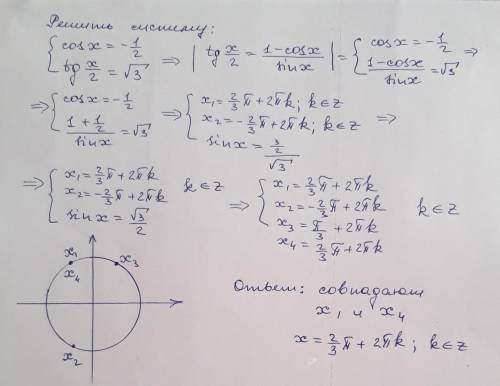 Решить систему:
{ cosx = -1/2
{ tg x/2 = √3 ⇒ | tg x/2 = (1-cosx)/sinx | = { cosx = -1/2
{ (1-cosx)/sinx = √3 ⇒
⇒ { cosx = -1/2
{ (1+1/2)/sinx = √3 ⇒ { x₁ = 2/3 π + 2πk; k∈z
{ x₂ = -2/3 π + 2πk; k∈z
{ sinx = (3/2)/√3 ⇒
⇒ { x₁ = 2/3 π + 2πk
{ x₂ = -2/3 π + 2πk k∈Z
{ sinx = √3/2
⇒ { x₁ = 2/3 π + 2πk
{ x₂ = -2/3 π + 2πk k∈Z
{ x₃ = π/3 + 2πk
{ x₄ = 2/3 π + 2πk
x₁
x₄
x₃
x₂
Ответ: совпадают
x₁ и x₄
x = 2/3 π + 2πk; k∈Z